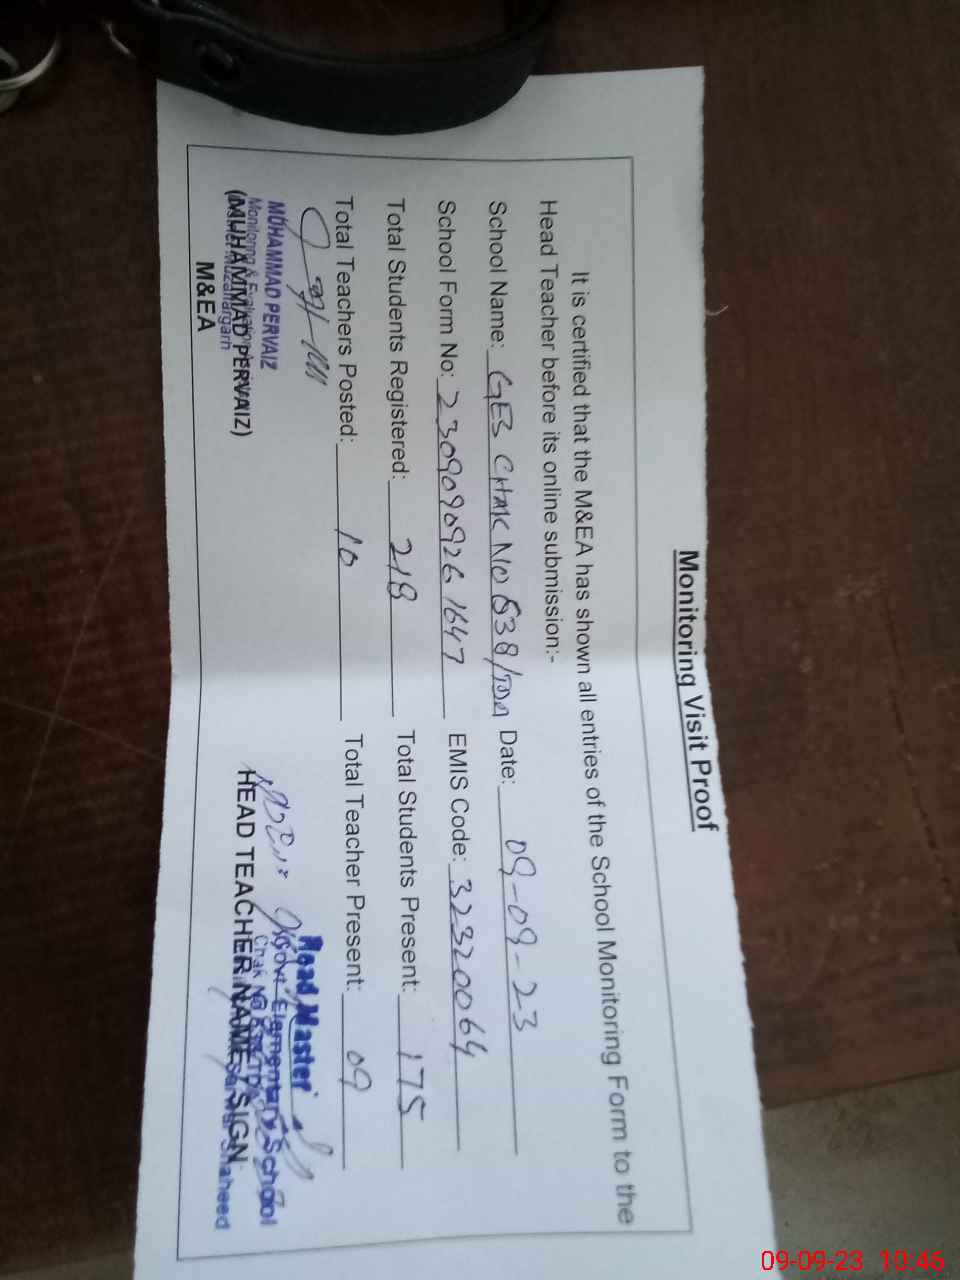 Monitoring Visit Proof
It is certified that the M&EA has shown all entries of the School Monitoring Form to the
Head Teacher before its online submission:-
School Name: GES CHAK NO 538/TDA Date: 09-09-23
School Form No: 23090909261647 EMIS Code: 32320064
Total Students Registered: 218 Total Students Present: 175
Total Teachers Posted: 10 Total Teacher Present: 09
MUHAMMAD PERVAIZ
Monitoring & Evaluation
Muzaffargarh
(MUHAMMAD PERVAIZ)
M&EA
Head Master
Govt. Elementary School
Chak No
HEAD TEACHER NAME / SIGN
Shaheed
09-09-23 10:46